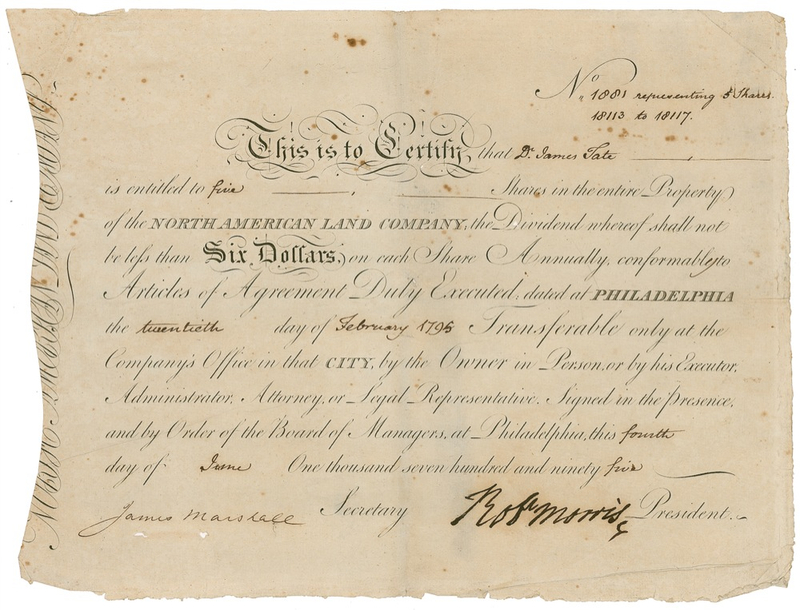 No. 1881 representing 5 Shares.
18113 to 18117.
This is to Certify, that Dr. James Tate
is entitled to five Shares in the entire Property
of the NORTH AMERICAN LAND COMPANY, the Dividend whereof shall not
be leſs than Six Dollars, on each Share Annually, conformably to
Articles of Agreement Duly Executed, dated at PHILADELPHIA
the twentieth day of February 1795 Transferable only at the
Company's Office in that CITY, by the Owner in Person, or by his Executor,
Administrator, Attorney, or Legal Representative. Signed in the presence,
and by Order of the Board of Managers, at Philadelphia, this fourth
day of June One thousand seven hundred and ninety five
James Marshall Secretary Robt Morris President.